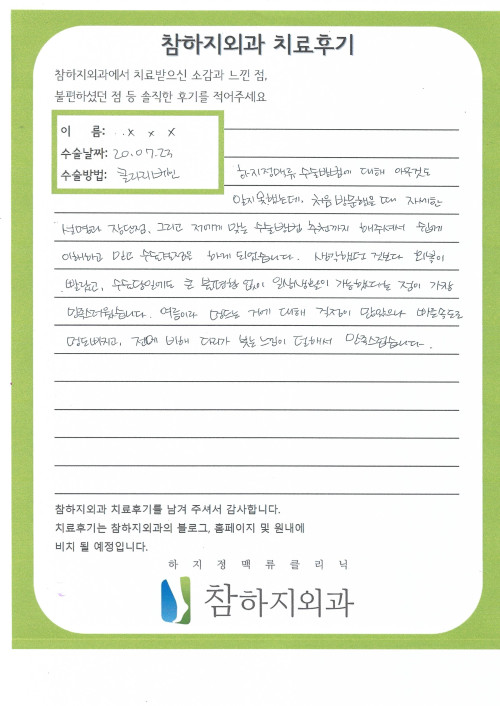 참하지외과 치료후기
참하지외과에서 치료받으신 소감과 느낀 점,
불편하셨던 점 등 솔직한 후기를 적어주세요
이 름: ..x x x
수술날짜: 20.07.23
수술방법: 클라리베인
하지정맥류 수술방법에 대해 아무것도
알지 못했는데, 처음 방문했을 때 자세한
설명과 장단점, 그리고 저에게 맞는 수술방법 추천까지 해주셔서 쉽게
이해하고 믿고 수술결정을 하게 되었습니다. 생각했던 것보다 회복이
빠르고, 수술당일에도 큰 불편함 없이 일상생활이 가능했다는 점이 가장
만족스러웠습니다. 여름이라 멍드는 거에 대해 걱정이 많았으나 빠른속도로
멍도 빠지고, 전에 비해 다리가 붓는 느낌이 덜해서 만족스럽습니다.
참하지외과 치료후기를 남겨 주셔서 감사합니다.
치료후기는 참하지외과의 블로그, 홈페이지 및 원내에
비치 될 예정입니다.
하 지 정 맥 류 클 리 닉
참하지외과